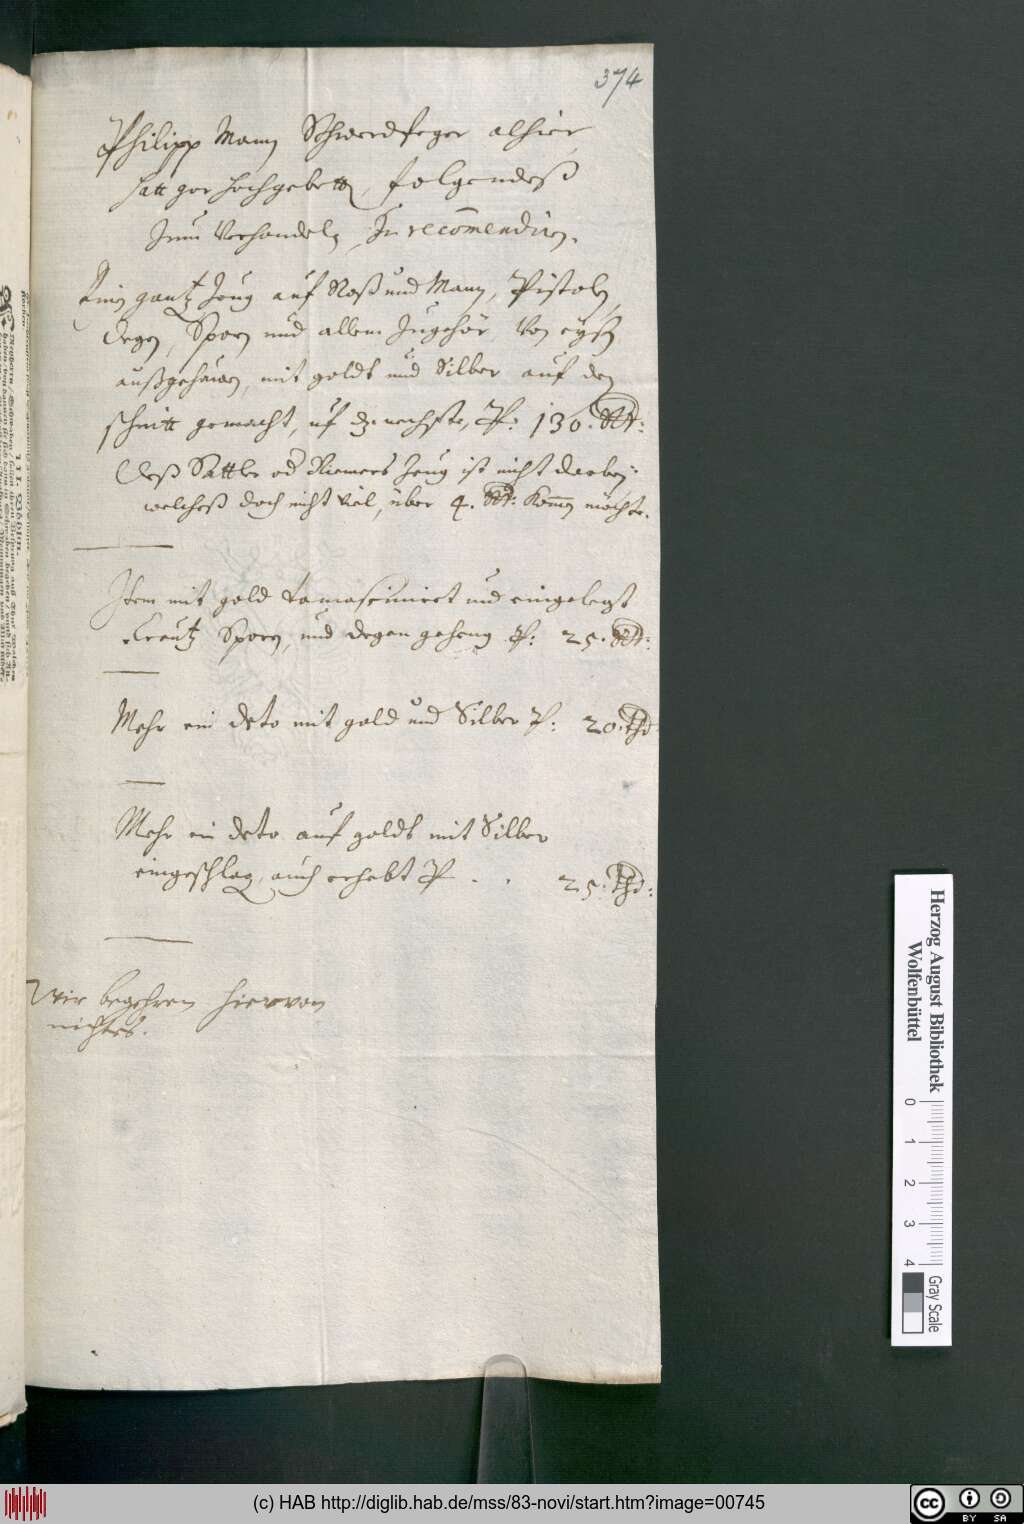 374
Philipp Mann Schwerdfeger alhier
hatt gar hochgebetten, folgendeß
Zum Verhandeln Zu recom̄endirn.
Ein gantz Zeug auf Roß und Mann, Pistoln,
degen, Sporn und allem Zugehör, Von eyß
außgehawen, mit goldt und Silber auf den
schnitt gemacht, uf dz nechste, P: 130.
Deß Sattler od Riemers Zeug ist nicht darbey
welcheß doch nicht viel, über 4. Kom̄en möchte.
Item mit gold tamascinirt und eingelegt
Creutz Sporn, und degen geheng P: 25.
Mehr ein deto mit gold und Silber P: 20. thl
Mehr ein deto auf goldt mit Silber
eingeschlag, auch erhebt P . . 25. thl:
Wir begehren hiervon
nichts.
III.
Herzog August Bibliothek
Wolfenbüttel
0 1 2 3 4
Gray Scale
(c) HAB http://diglib.hab.de/mss/83-novi/start.htm?image=00745
cc BY SA